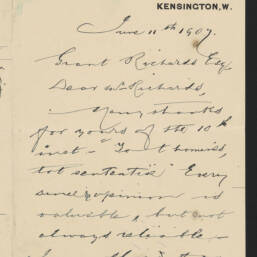 KENSINGTON, W.
June 11th 1907.
Grant Richards Esq
Dear Mr Richards,
Many thanks
for yours of the 10th
inst - "Quot homines,
tot sententiæ" Every
opinion is
valuable, but not
always reliable -